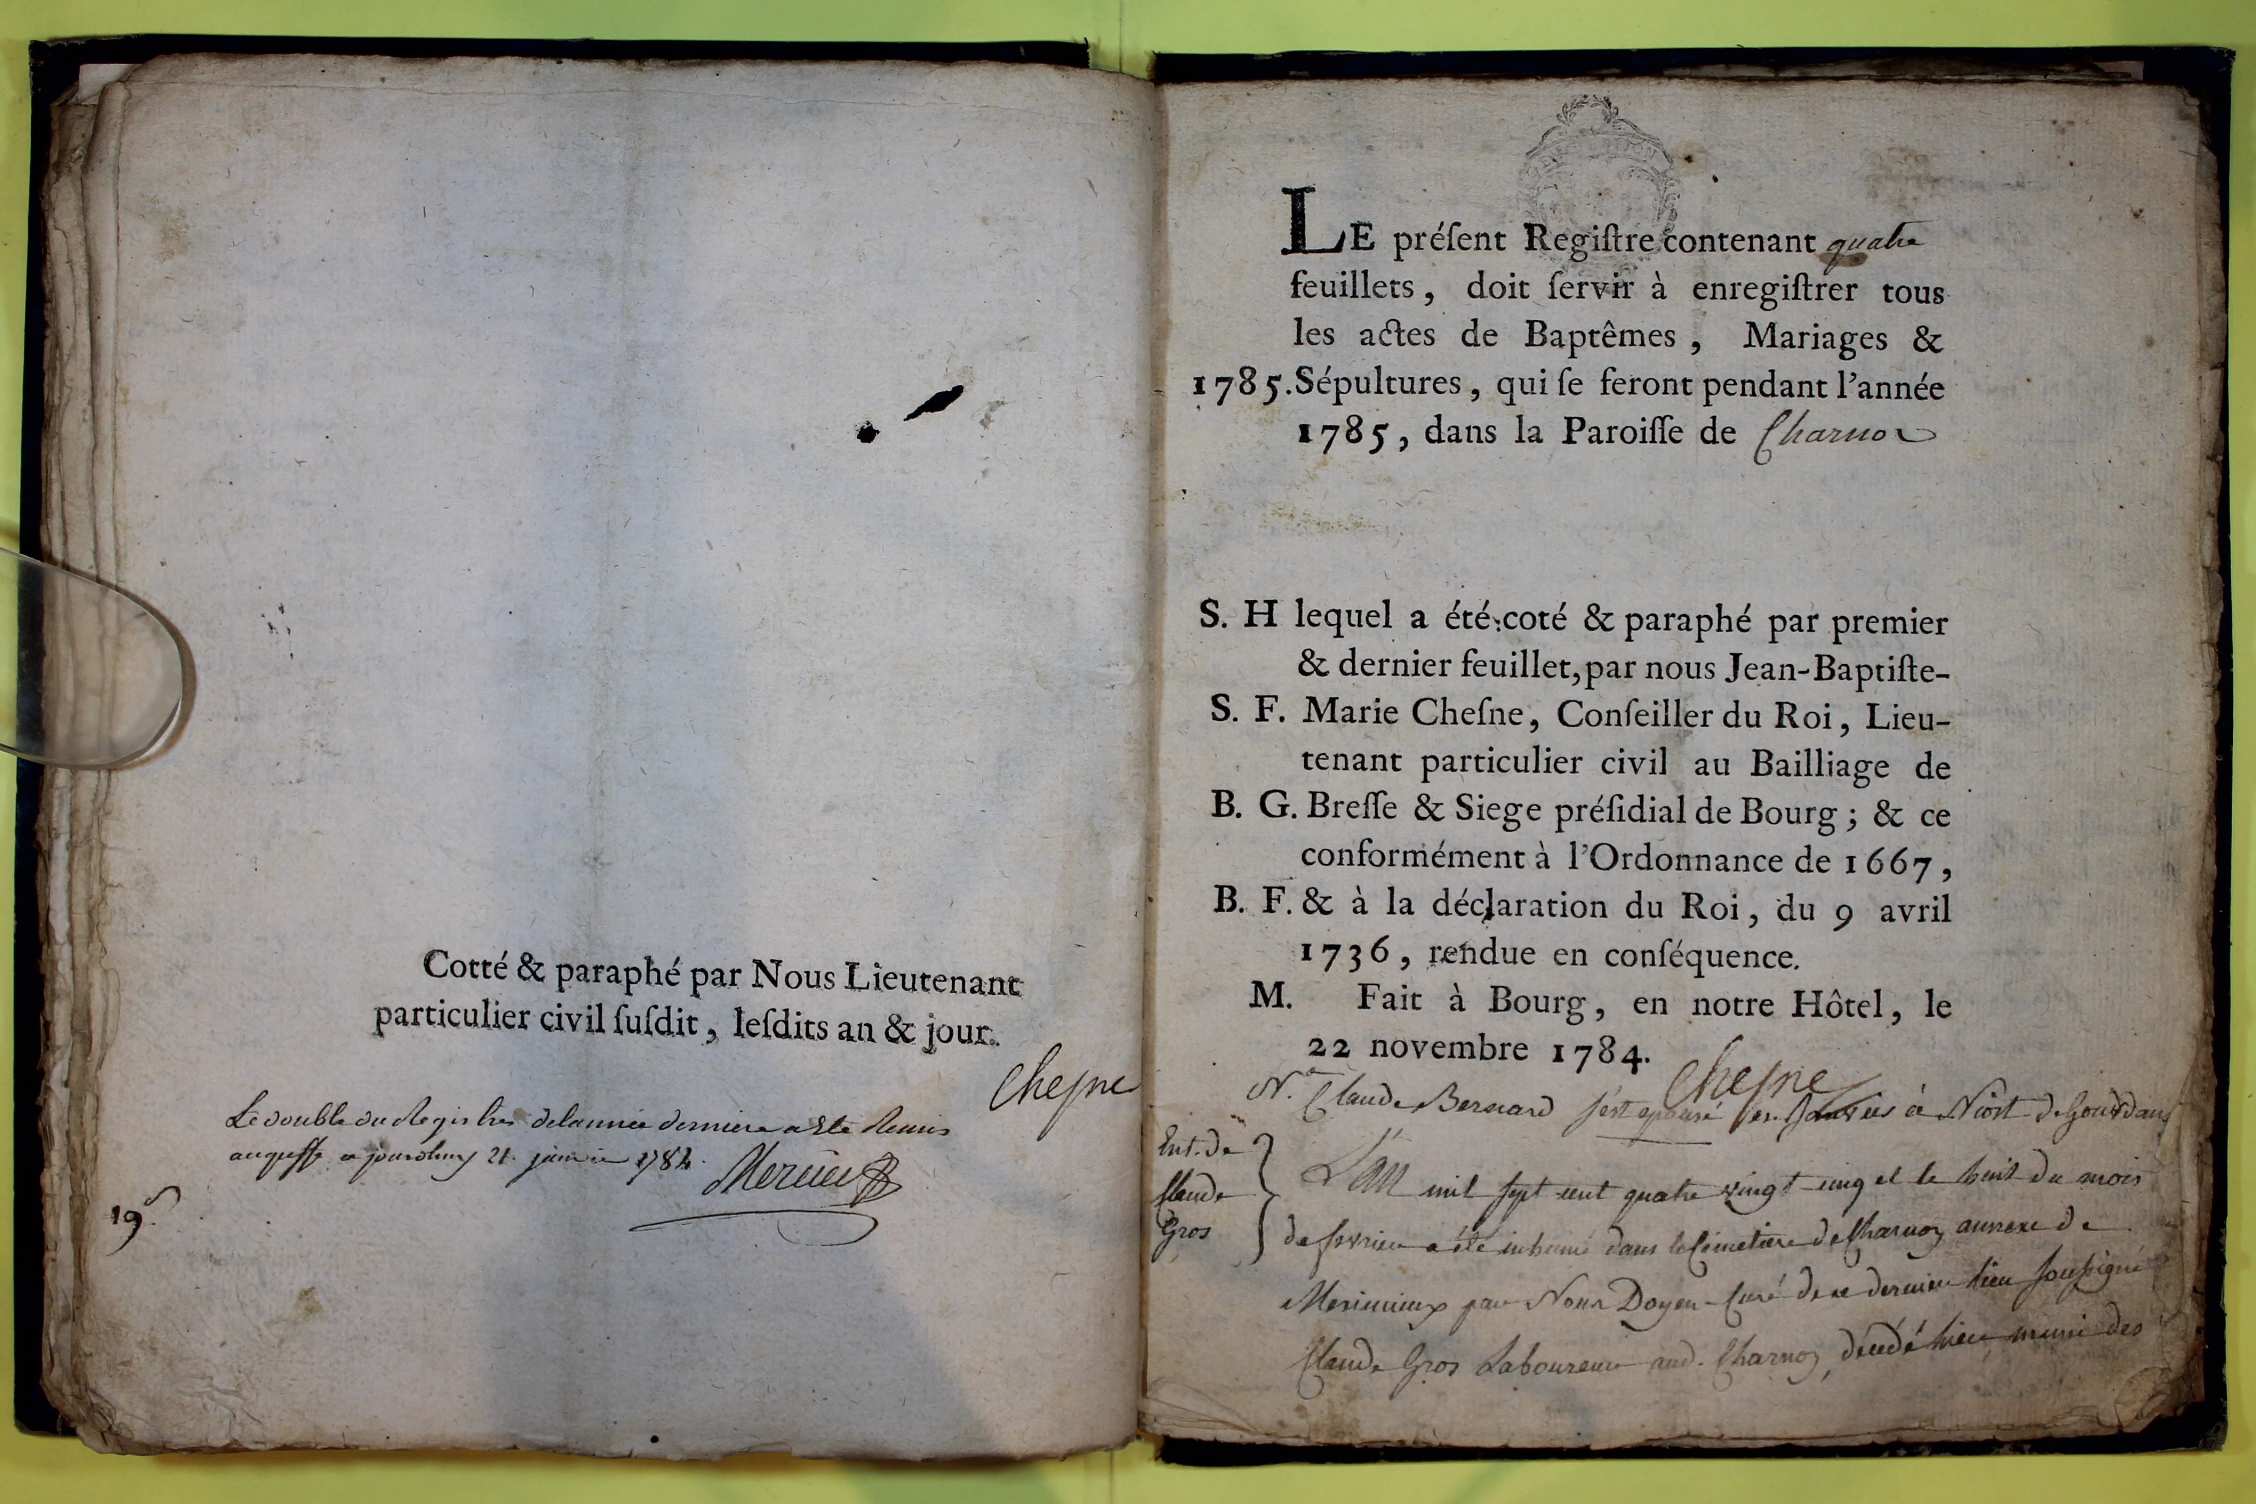 Cotté & paraphé par Nous Lieutenant
particulier civil ſuſdit, leſdits an & jour.
Chesne
Le double du Registre de lannée derniere a Eté Remis
au greffe ce jourdhuy 21. janvier 1784.
Mercier
19.
LE préſent Regiſtre contenant quatre
feuillets, doit ſervir à enregiſtrer tous
les actes de Baptêmes, Mariages &
1785. Sépultures, qui ſe feront pendant l'année
1785, dans la Paroiſſe de Charnoz
S. H lequel a été coté & paraphé par premier
& dernier feuillet, par nous Jean-Baptiſte-
S. F. Marie Cheſne, Conſeiller du Roi, Lieu-
tenant particulier civil au Bailliage de
B. G. Breſſe & Siege préſidial de Bourg; & ce
conformément à l'Ordonnance de 1667,
B. F. & à la déclaration du Roi, du 9 avril
1736, rendue en conſéquence.
M. Fait à Bourg, en notre Hôtel, le
22 novembre 1784.
Chesne
Nª Claude Bernard s'est epousé en janvier à Niost de Gourdans
Ent. de
Claude
Gros
L'an mil sept cent quatre vingt cinq et le huit du mois
de fevrier a été inhumé dans le Cémetiere de Charnoz annexe de
Meximieux par Nous Doyen-Curé de ce dernier lieu soussigné
Claude Gros Laboureur aud. Charnoz, décédé hier muni des